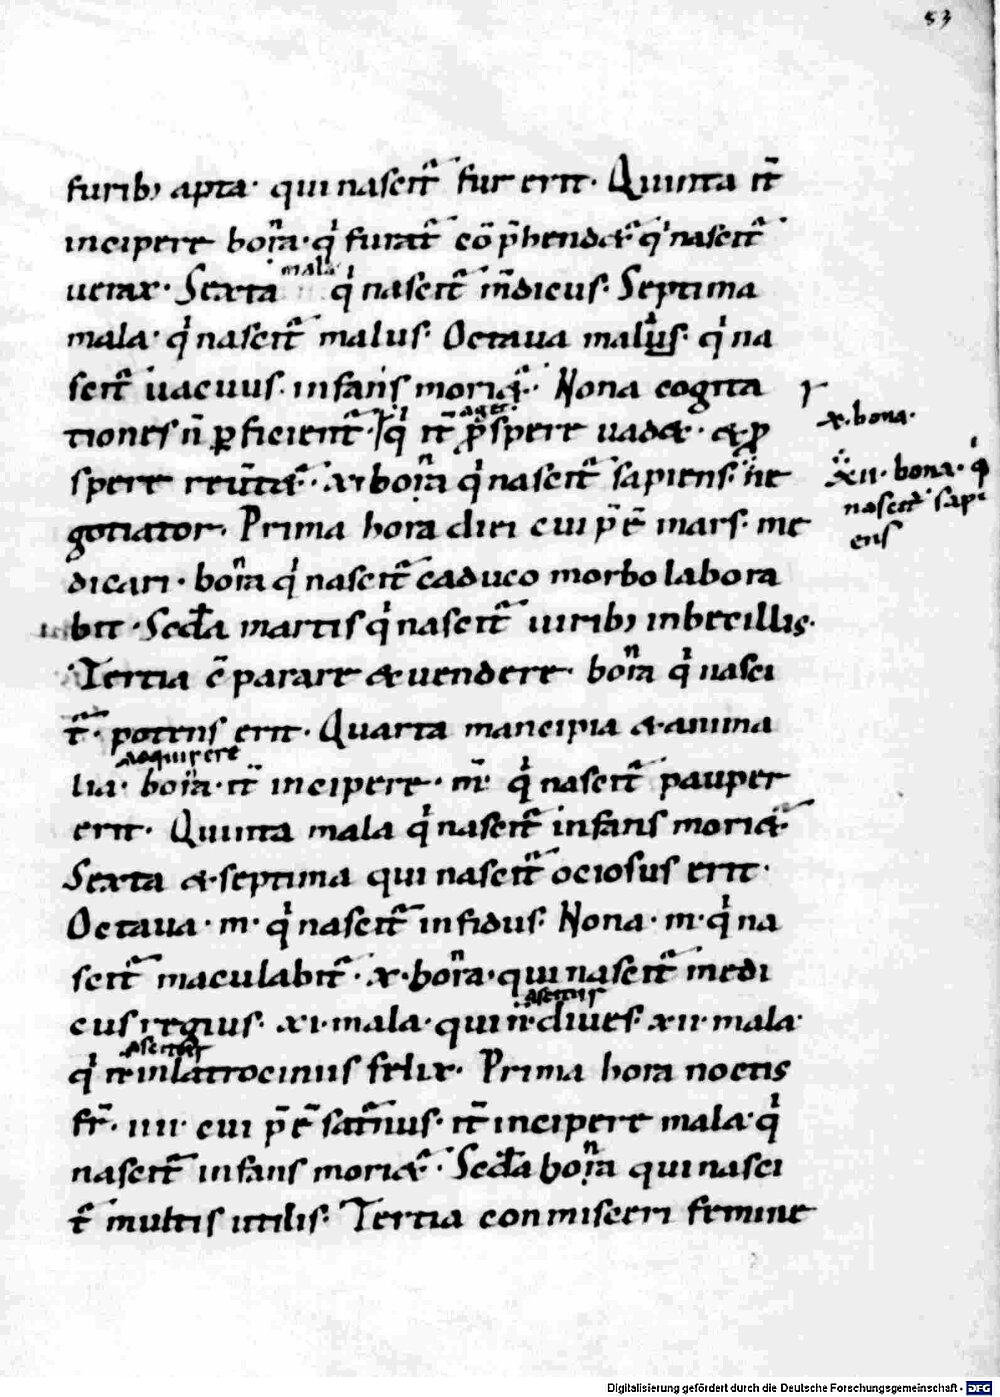 53
furib; apta· qui nascit̄ fur erit· Quinta it̄
incipere bona· q̇ furat̄ cō p̄hendet̄· q̇ nascit̄
mala
uerax· Sexta q̇ nascit̄ m̄dicus· Septima
mala· q̇ nascit̄ malus· Octaua malus· q̇ na
scit̄ uacuus· infans moriet̄· Nona cogita
tiones n̄ ꝑficient̄· q̇ it̄ ꝓspere uadet· et ꝓ
ager
x· bona·
spere reuertet̄· xi bona q̇ nascit̄ sapiens· ne
xii· bona· q̇
nascet̄ sapi
ens
gotiator· Prima hora diei cui p̄ē mars· me
dicari· bona q̇ nascit̄ caduco morbo labora
bit· Scda martis q̇ nascit̄ uirib; inbecillis·
Tertia ē parare et uendere· bona q̇ nasci
t̄· potens erit· Quarta mancipia et anima
adquirere
lia· bona· it̄ incipere· m̄· q̇ nascit̄ pauper
erit· Quinta mala q̇ nascit̄ infans moriet̄·
Sexta et septima qui nascit̄ ociosus erit·
Octaua· m· q̇ nascit̄ infidus· Nona· m· q̇ na
scit̄ maculabit̄· x· bona· qui nascit̄ medi
cus regius· xi· mala· qui diues· xii· mala·
q̇ in latrociniis felix· Prima hora noctis
fr̄· iiii· cui p̄ē saturnus· it̄ incipere mala· q̇
nascit̄ infans moriet̄· Scda bona qui nasci
t̄ multis utilis· Tertia conmisceri femine
Digitalisierung gefördert durch die Deutsche Forschungsgemeinschaft - DFG